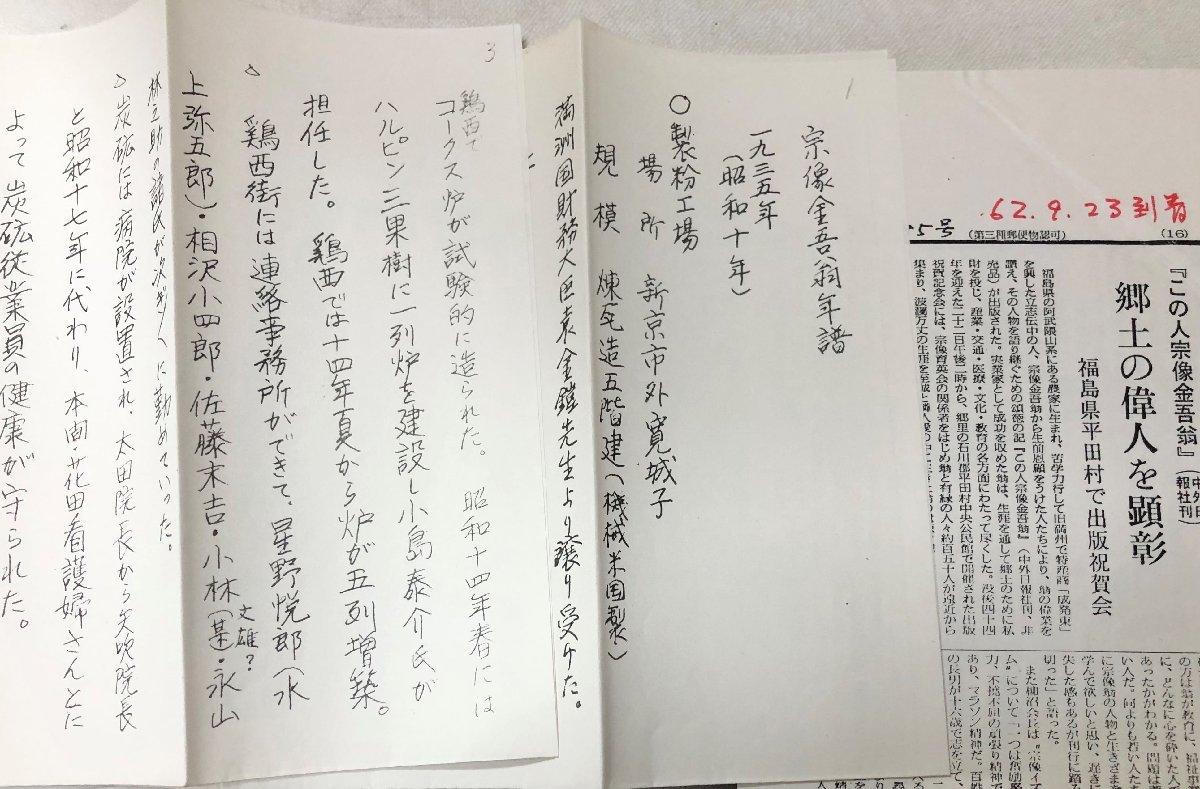 1
宗像金吾翁年譜
一九三五年
(昭和十年)
〇製粉工場
場所 新京市外寛城子
規模 煉瓦造五階建(機械米国製)
満洲国財務大臣袁金鎧先生より譲り受けた。
3
鶏西で
コークス炉が試験的に造られた。 昭和十四年春には
ハルピン三果樹に一列炉を建設し小島泰介氏が
担任した。 鶏西では十四年夏から炉が五列増築。
鶏西街には連絡事務所ができて、星野悦郎(水
上弥五郎)・相沢小四郎・佐藤末吉・小林(甚・永山
文雄?
林之助の諸氏が次ぎ/\に勤めていった。
炭砿には病院が設置され、太田院長から矢吹院長
と昭和十七年に代わり、本間・花田看護婦さんとに
よって炭砿従業員の健康が守られた。
62.9.23到着
5号
(第三種郵便物認可)
(16)
『この人宗像金吾翁』
報社刊)
郷土の偉人を顕彰
福島県平田村で出版祝賀会
福島県の阿武隈山系にある農家に生まれ、苦学力行して旧満州で特産商「成発東」
を興した立志伝中の人、宗像金吾翁から生前恩顧をうけた人たちにより、翁の偉業を
讃え、その人物を語り継ぐための頌徳の記『この人宗像金吾翁』(中外日報社刊、非
売品)が出版された。実業家として成功を収めた翁は、生涯を通して郷土のために私
財を投じ、産業・交通・医療・文化・教育の各方面にわたって尽くした。没後四十四
年を迎えた二十二日午後二時から、郷里の石川郡平田村中央公民館で開催された出版
祝賀記念会には、宗像育英会の関係者をはじめ翁と有縁の人々約百五十人が遠近から
集まり、波瀾万丈の生涯を
の方は翁が教育に、福祉事
に、どんなに心を砕いた人で
あったかがわかる。問題は
い人だ。何よりも若い人たち
に宗像翁の人物と生きざまを
学んで欲しいと思い、遅きに
失した感もあるが刊行に踏み
切った」と語った。
また柳沼会長は"宗像イズ
ム"について「一つは奮励
力、不撓不屈の頑張り精神で
あり、マラソン精神だ。百姓
の長男が十六歳で志を立て、